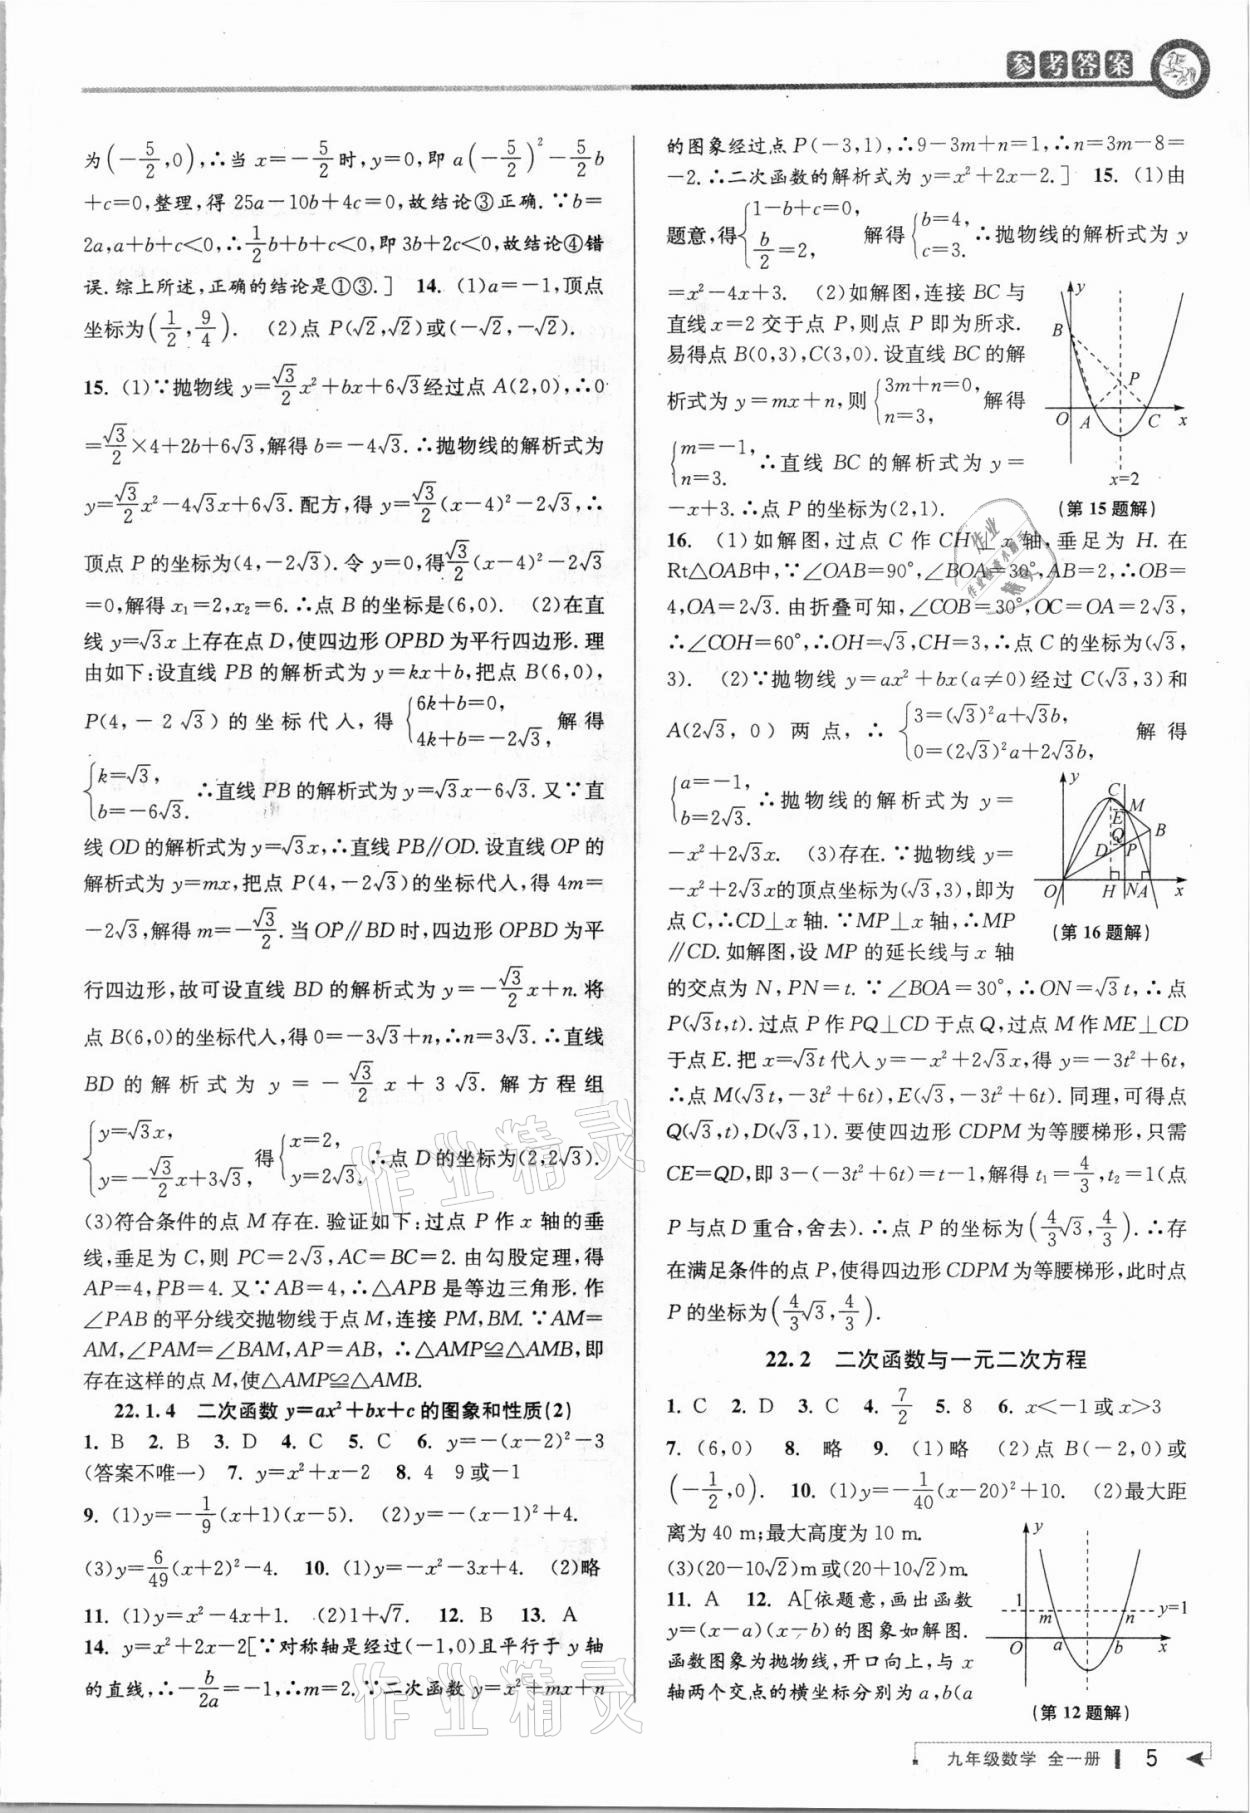 参考答案
为(−5/2,0),∴当 x=−5/2时,y=0,即 a(−5/2)²−5/2b
+c=0,整理,得 25a−10b+4c=0,故结论③正确.∵b=
2a,a+b+c<0,∴1/2b+b+c<0,即 3b+2c<0,故结论④错
误.综上所述,正确的结论是①③.] 14. (1)a=−1,顶点
坐标为(1/2,9/4). (2)点 P(√2,√2)或(−√2,−√2).
15. (1)∵抛物线 y=√3/2x²+bx+6√3经过点 A(2,0),∴0
=√3/2×4+2b+6√3,解得 b=−4√3.∴抛物线的解析式为
y=√3/2x²−4√3x+6√3.配方,得 y=√3/2(x−4)²−2√3,∴
顶点 P 的坐标为(4,−2√3).令 y=0,得√3/2(x−4)²−2√3
=0,解得 x₁=2,x₂=6.∴点 B 的坐标是(6,0). (2)在直
线 y=√3x上存在点 D,使四边形 OPBD 为平行四边形.理
由如下:设直线 PB 的解析式为 y=kx+b,把点 B(6,0),
P(4,−2√3)的坐标代人,得{6k+b=0, 4k+b=−2√3, 解得
{k=√3, b=−6√3. ∴直线 PB 的解析式为 y=√3x−6√3.又∵直
线 OD 的解析式为 y=√3x,∴直线 PB∥OD.设直线 OP 的
解析式为 y=mx,把点 P(4,−2√3)的坐标代人,得 4m=
−2√3,解得 m=−√3/2.当 OP∥BD 时,四边形 OPBD 为平
行四边形,故可设直线 BD 的解析式为 y=−√3/2x+n.将
点 B(6,0)的坐标代人,得 0=−3√3+n,∴n=3√3.∴直线
BD 的解析式为 y=−√3/2x+3√3.解方程组
{y=√3x, y=−√3/2x+3√3, 得{x=2, y=2√3, ∴点 D 的坐标为(2,2√3).
(3)符合条件的点 M 存在.验证如下:过点 P 作 x 轴的垂
线,垂足为 C,则 PC=2√3,AC=BC=2.由勾股定理,得
AP=4,PB=4.又∵AB=4,∴△APB 是等边三角形.作
∠PAB的平分线交抛物线于点 M,连接 PM,BM.∵AM=
AM,∠PAM=∠BAM,AP=AB,∴△AMP≌△AMB,即
存在这样的点 M,使△AMP≌△AMB.
22.1.4 二次函数 y=ax²+bx+c 的图象和性质(2)
1. B 2. B 3. D 4. C 5. C 6. y=−(x−2)²−3
(答案不唯一) 7. y=x²+x−2 8. 4 9或−1
9. (1)y=−1/9(x+1)(x−5). (2)y=−(x−1)²+4.
(3)y=6/49(x+2)²−4. 10. (1)y=−x²−3x+4. (2)略
11. (1)y=x²−4x+1. (2)1+√7. 12. B 13. A
14. y=x²+2x−2[∵对称轴是经过(−1,0)且平行于 y 轴
的直线,∴−b/2a=−1,∴m=2.∵二次函数 y=x²+mx+n
的图象经过点 P(−3,1),∴9−3m+n=1,∴n=3m−8=
−2.∴二次函数的解析式为 y=x²+2x−2.] 15. (1)由
题意,得{1−b+c=0, b/2=2, 解得{b=4, c=3. ∴抛物线的解析式为 y
=x²−4x+3. (2)如解图,连接 BC 与
直线 x=2 交于点 P,则点 P 即为所求.
易得点 B(0,3),C(3,0).设直线 BC 的解
析式为 y=mx+n,则{3m+n=0, n=3, 解得
{m=−1, n=3. ∴直线 BC 的解析式为 y=
−x+3.∴点 P 的坐标为(2,1).
y
B
P
O A C x
x=2
(第 15 题解)
16. (1)如解图,过点 C 作 CH⊥x 轴,垂足为 H.在
Rt△OAB中,∵∠OAB=90°,∠BOA=30°,AB=2,∴OB=
4,OA=2√3.由折叠可知,∠COB=30°,OC=OA=2√3,
∴∠COH=60°,∴OH=√3,CH=3,∴点 C 的坐标为(√3,
3). (2)∵抛物线 y=ax²+bx(a≠0)经过 C(√3,3)和
A(2√3,0)两点,∴{3=(√3)²a+√3b, 0=(2√3)²a+2√3b, 解得
{a=−1, b=2√3. ∴抛物线的解析式为 y=
−x²+2√3x. (3)存在.∵抛物线 y=
−x²+2√3x的顶点坐标为(√3,3),即为
点 C,∴CD⊥x 轴.∵MP⊥x 轴,∴MP
∥CD.如解图,设 MP 的延长线与 x 轴
y
C
M
E
Q B
D P
O H N A x
(第 16 题解)
的交点为 N,PN=t.∵∠BOA=30°,∴ON=√3t,∴点
P(√3t,t).过点 P 作 PQ⊥CD 于点 Q,过点 M 作 ME⊥CD
于点 E.把 x=√3t代人 y=−x²+2√3x,得 y=−3t²+6t,
∴点 M(√3t,−3t²+6t),E(√3,−3t²+6t).同理,可得点
Q(√3,t),D(√3,1).要使四边形 CDPM 为等腰梯形,只需
CE=QD,即 3−(−3t²+6t)=t−1,解得 t₁=4/3,t₂=1(点
P 与点 D 重合,舍去).∴点 P 的坐标为(4/3√3,4/3).∴存
在满足条件的点 P,使得四边形 CDPM 为等腰梯形,此时点
P 的坐标为(4/3√3,4/3).
22.2 二次函数与一元二次方程
1. C 2. D 3. C 4. 7/2 5. 8 6. x<−1或x>3
7. (6,0) 8. 略 9. (1)略 (2)点 B(−2,0)或
(−1/2,0). 10. (1)y=−1/40(x−20)²+10. (2)最大距
离为 40 m;最大高度为 10 m.
(3)(20−10√2)m或(20+10√2)m.
11. A 12. A[依题意,画出函数
y=(x−a)(x−b)的图象如解图.
函数图象为抛物线,开口向上,与 x
轴两个交点的横坐标分别为 a,b(a
y
1
m n y=1
O a b x
(第 12 题解)
九年级数学 全一册 5
作业精灵
作业精灵